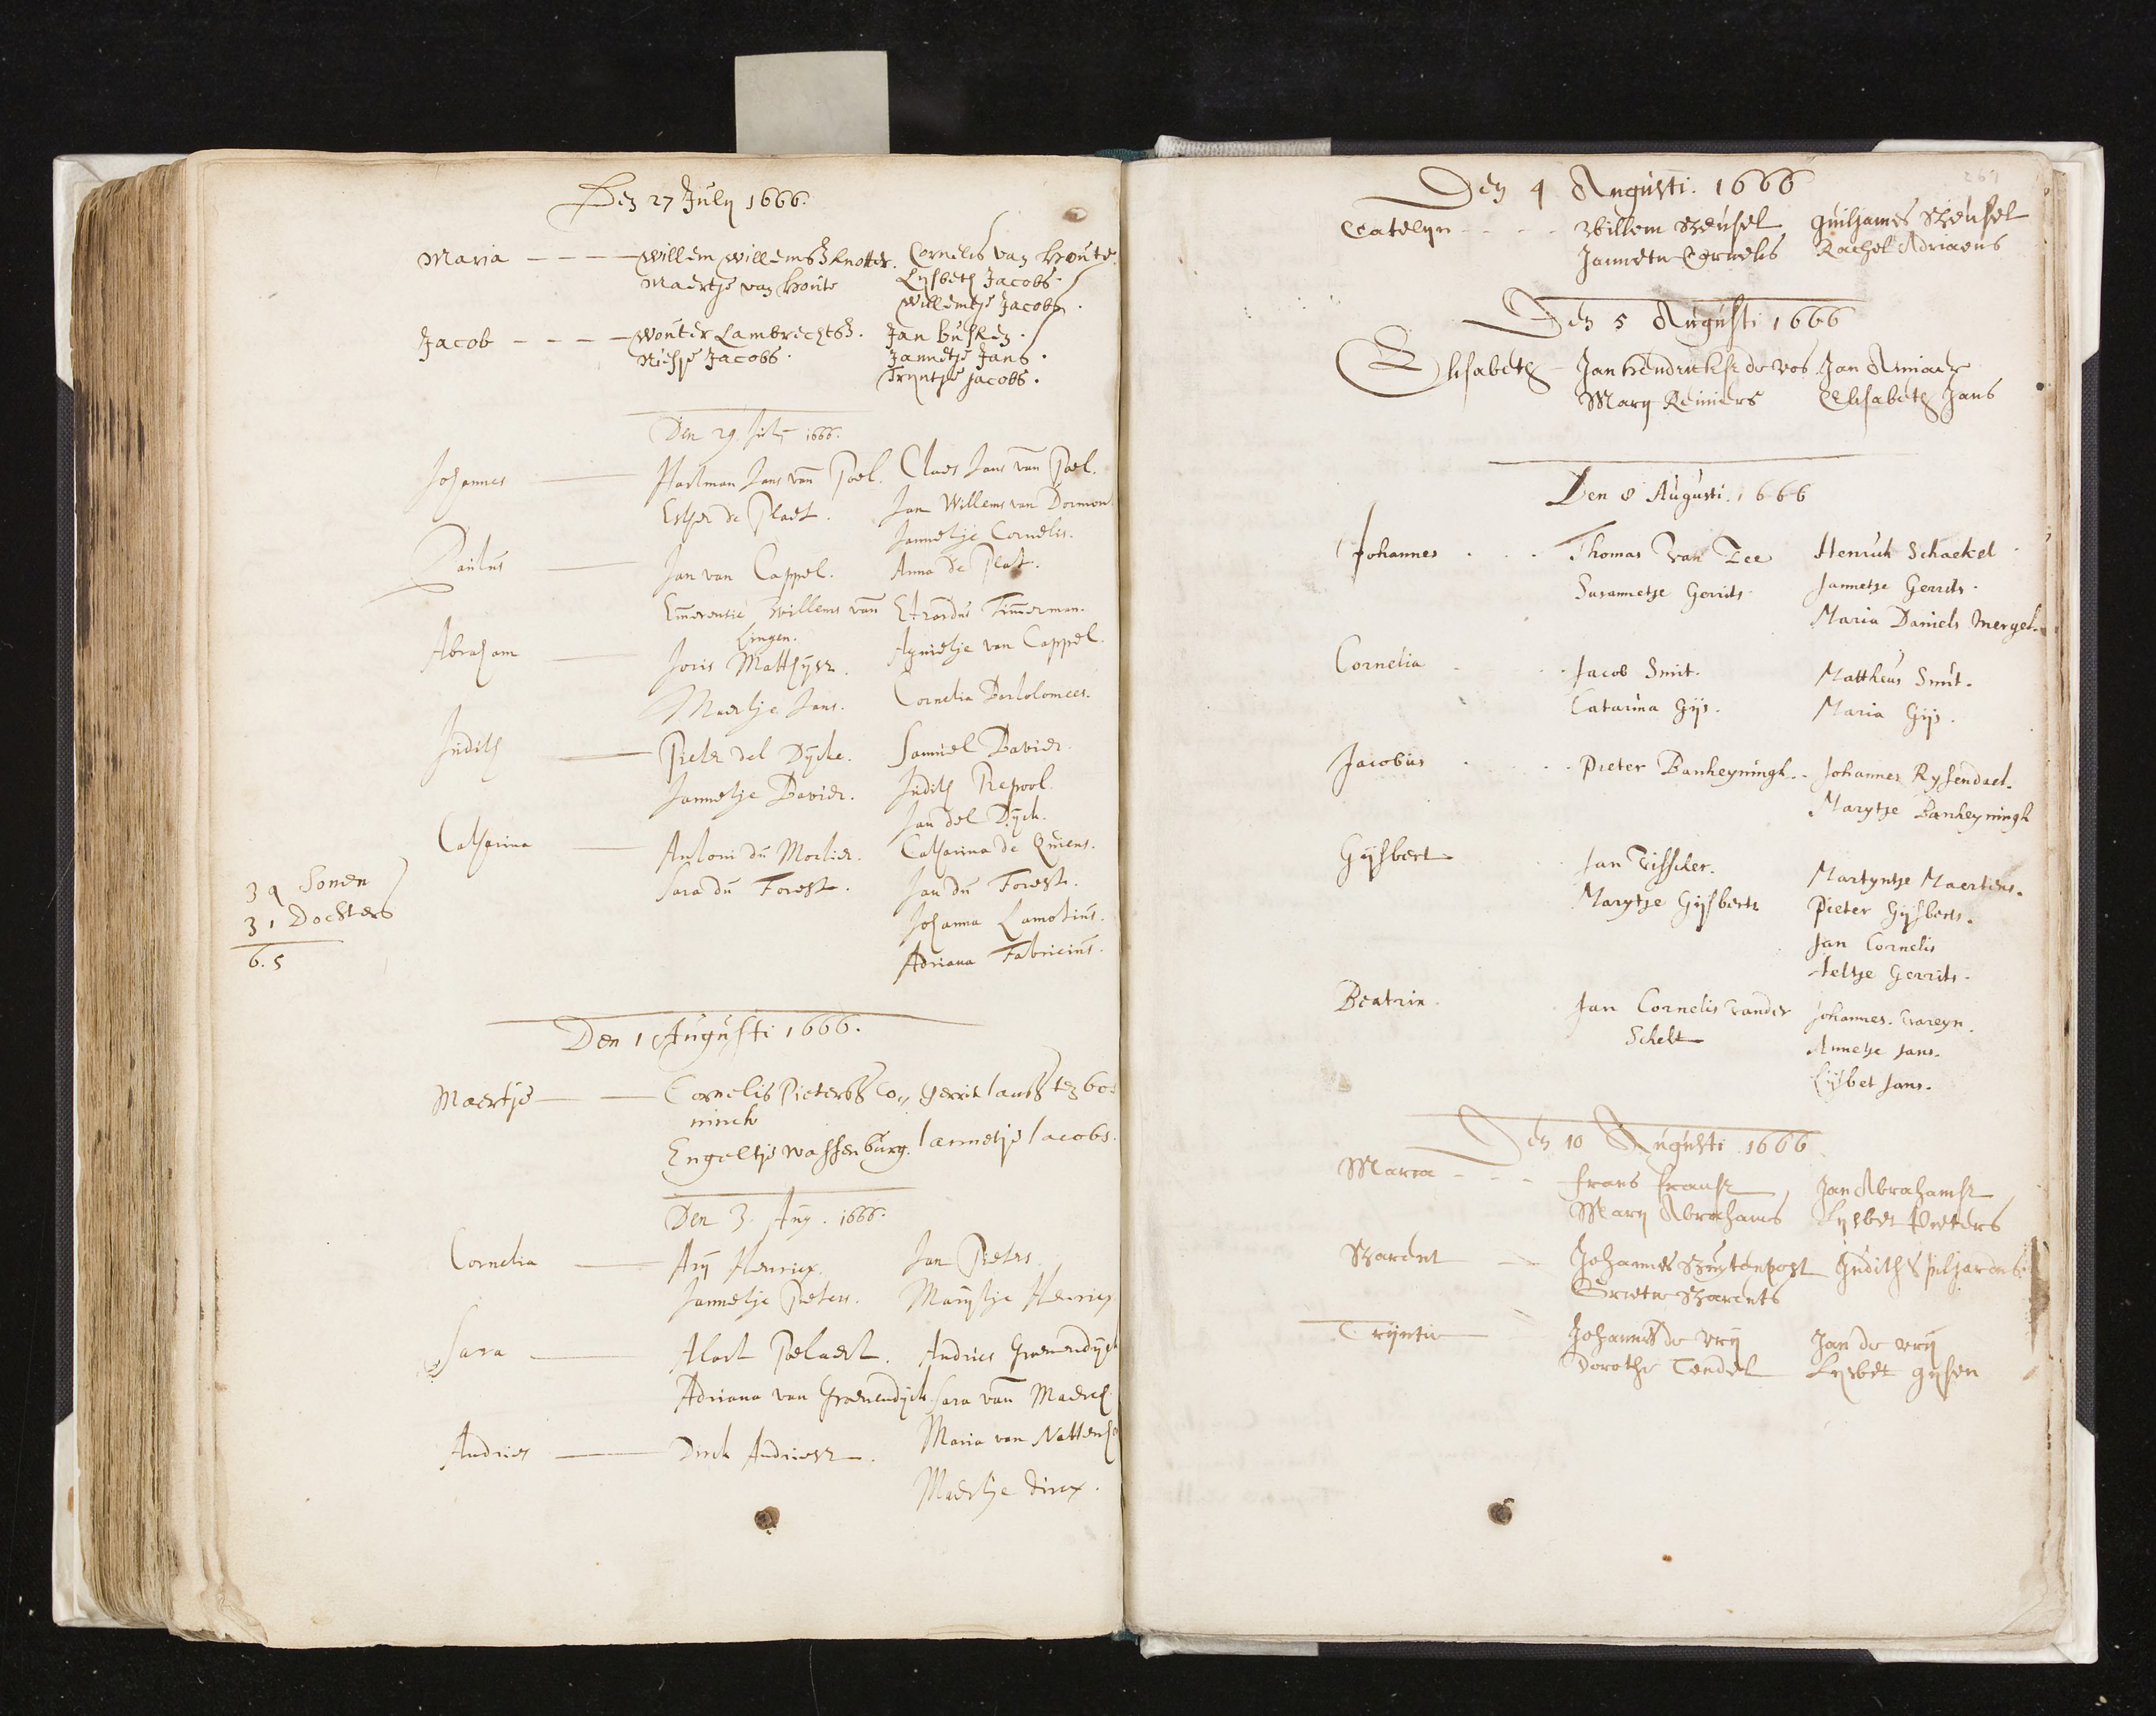 Den 27 July 1666.
Maria Willem Willemsz Knotter. Cornelis van Houte.
Maertje van Houte Lysbeth Jacobs.
Willemtje Jacobs.
Jacob Wouter Lambrechtsz. Jan Busken.
Niesje Jacobs. Jannetje Jans.
Tryntje Jacobs.
Den 29. July 1666.
Johannes Hartman Jans van Poel. Claes Jans van Poel.
Esther de Plaet. Jan Willems van Dormon
Jannetje Cornelis.
Paulus Jan van Cappel. Anna de Plat.
Emerentie Willems van Lingen. Timmerman.
Abraham Joris Matthysz. Agnietje van Cappel.
Maertje Jans. Cornelia Bartolomees.
Judith Pieter del Dycke. Samuel Davier.
Jannetje Davier. Judith Repool.
Jan del Dyck.
Catharina Antoni du Mortier. Catharina de Quiens.
Sara du Forest. Jan du Forest.
Johanna Lamotius.
Adriana Fabricius.
3 4 Sonen
3 1 Dochters
6.5
Den 1 Augusti 1666.
Maertje Cornelis Pietersz Co,, Gerrit Jansz
ninck
Engeltje Wassenburg. Jannetje Jacobs.
Den 3. Aug. 1666.
Cornelia Ary Henricx. Jan Pieters.
Jannetje Pieters. Marytje Henricx
Sara Alart Poelaert. Andries Groenendyck
Adriana van Groenendyck Sara van
Maria van
Andries Dirck Andriesz.
Maertje Dircx.
Den 4 Augusti. 1666
Catelyn Willem Beusel Guiljames Beusel
Jannetie Cornelis Rachel Adriaens
Den 5 Augusti 1666
Elisabeth Jan Hendrickse de Vos Jan
Mary Reiniers Elisabeth Jans
Den 8 Augusti. 1666
Johannes Thomas van Zee Henrick Schaekel
Susannetje Gerrits. Jannetje Gerrits.
Maria Daniels Mergel.
Cornelia Jacob Smit. Mattheus Smit.
Catarina Gijs. Maria Gijs.
Jacobus Pieter Bankeyningh. Johannes Rysendael.
Marytje Bankeyningh
Gysbert Jan Visscher. Martyntje Maertens.
Marytje Gysberts Pieter Gysberts.
Jan Cornelis
Aeltje Gerrits.
Beatrix. Jan Cornelis vander Johannes. Vareyn.
Schelt Annetje Jans.
Lijsbet Jans.
Den 10 Augusti 1666
Maria Frans Fransz Jan Abrahamsz
Mary Abrahams Lysbet Pieters
Barent Johannes Buytenpost Judith Spiljardns
Grietie Barents
Tryntie Johannes de Vry Jan de Vry
Dorothe Tendel Lysbet Gysen